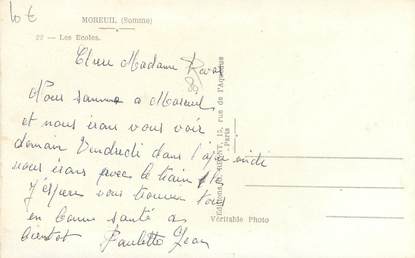 10 €
MOREUIL (Somme)
22 — Les Ecoles.
Chere Madame
Nous somme a Moreuil
et nous irons vous voir
demain Vendredi dans l'apr midi
nous irons avec le train
J'espere vous trouver tous
en bonne santé a
bientot Paulette Jean
Véritable Photo
15, rue de l'Aqueduc
Paris